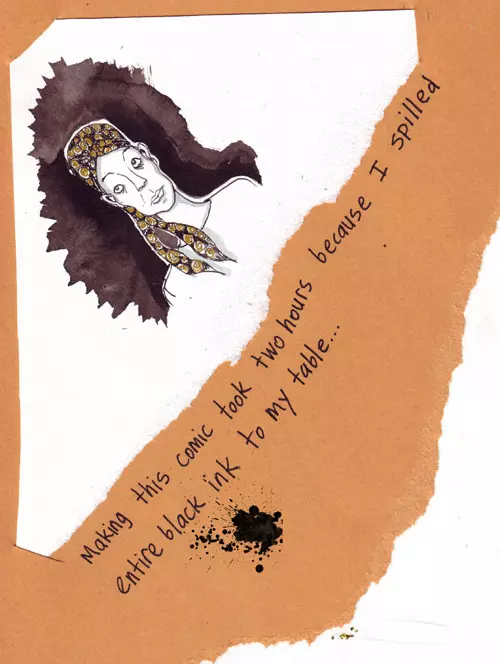 Making this comic took two hours because I spilled
entire black ink to my table...